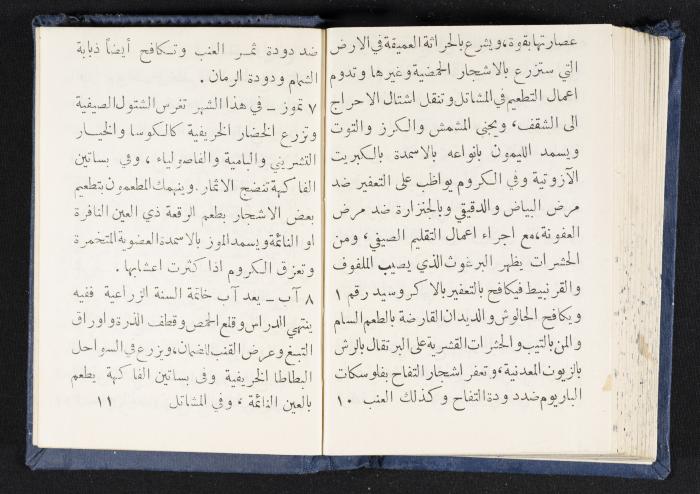 عصارتها بقوة، ويشرع بالحراثة العميقة في الارض
التي ستزرع بالاشجار الحمضية وغيرها وتدوم
اعمال التطعيم في المشاتل وتنقل اشتال الاحراج
الى الشقف، ويجنى المشمش والكرز والتوت
ويسمد الليمون بانواعه بالاسمدة بالكبريت
الآزوتية وفي الكروم يواظب على التعفير ضد
مرض البياض والدقيقي وبالجنزارة ضد مرض
العفونة، مع اجراء اعمال التقليم الصيفي، ومن
الحشرات يظهر البرغوث الذي يصيب الملفوف
والقرنبيط فيكافح بالتعفير بالاكروسيد رقم ١
ويكافح الحالوش والديدان القارضة بالطعم السام
والمن بالتيب والحشرات القشرية على البرتقال بالرش
بالزيون المعدنية، وتعفر اشجار التفاح بفلوسكات
الباريوم ضد دودة التفاح وكذلك العنب ١٠
ضد دودة ثمر العنب وتكافح أيضاً ذبابة
الشمام ودودة الرمان.
٧ تموز - في هذا الشهر تغرس الشتول الصيفية
وتزرع الخضار الخريفية كالكوسا والخيار
التشريني والبامية والفاصولياء، وفي بساتين
الفاكهة تنضج الاثمار. وينهمك المطعمون بتطعيم
بعض الاشجار بطعم الرقعة ذي العين النافرة
او النائمة ويسمد الموز بالاسمدة العضوية المتخمرة
وتعزق الكروم اذا كثرت اعشابها.
٨ آب - يعد آب خاتمة السنة الزراعية ففيه
ينتهي الدراس وقلع الحمص وقطف الذرة واوراق
التبغ وعرض القنب للضمان، ويزرع في السواحل
البطاطا الخريفية وفي بساتين الفاكهة يطعم
بالعين النائمة، وفي المشاتل ١١